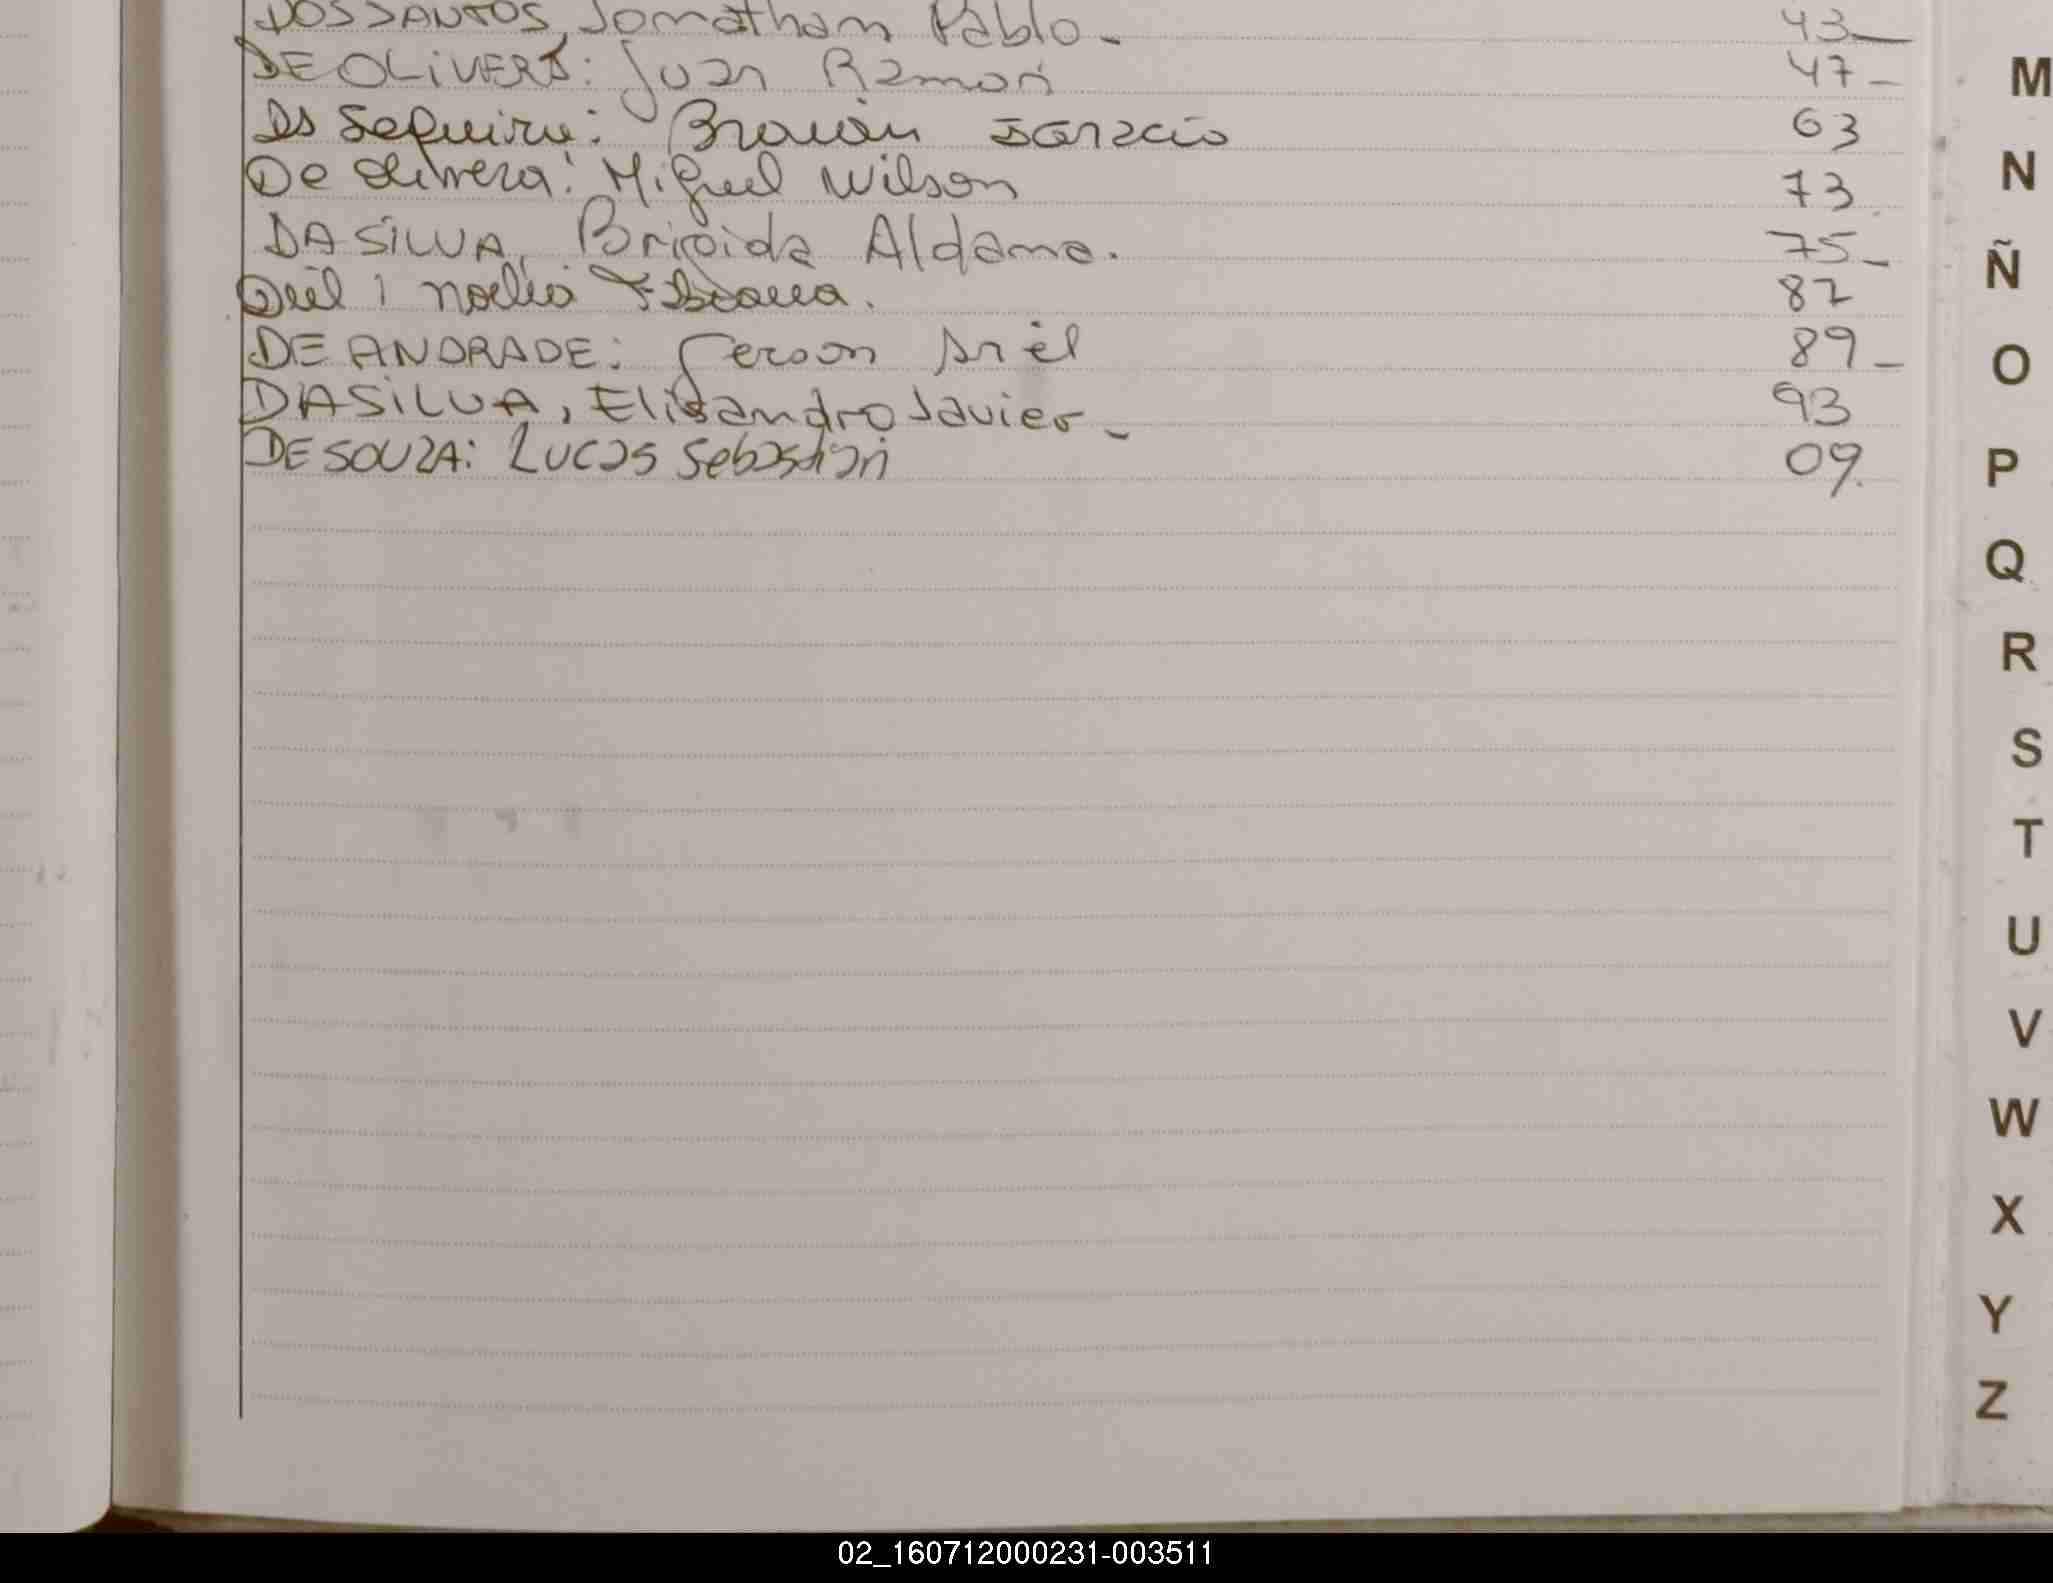 DOS SANTOS, Jonathan Pablo - 43 -
DE OLIVERA: Juan Ramon 47 -
De Sequeira: Braian Ignacio 63
De Olivera: Miguel Wilson 73
DA SILVA, Brigida Aldama. 75 -
Noelia 87
DE ANDRADE: Gerson Ariel 89 -
DA SILVA, Elisandro Javier - 93
DE SOUZA: Lucas Sebastian 09.
M
N
Ñ
O
P
Q
R
S
T
U
V
W
X
Y
Z
02_160712000231-003511